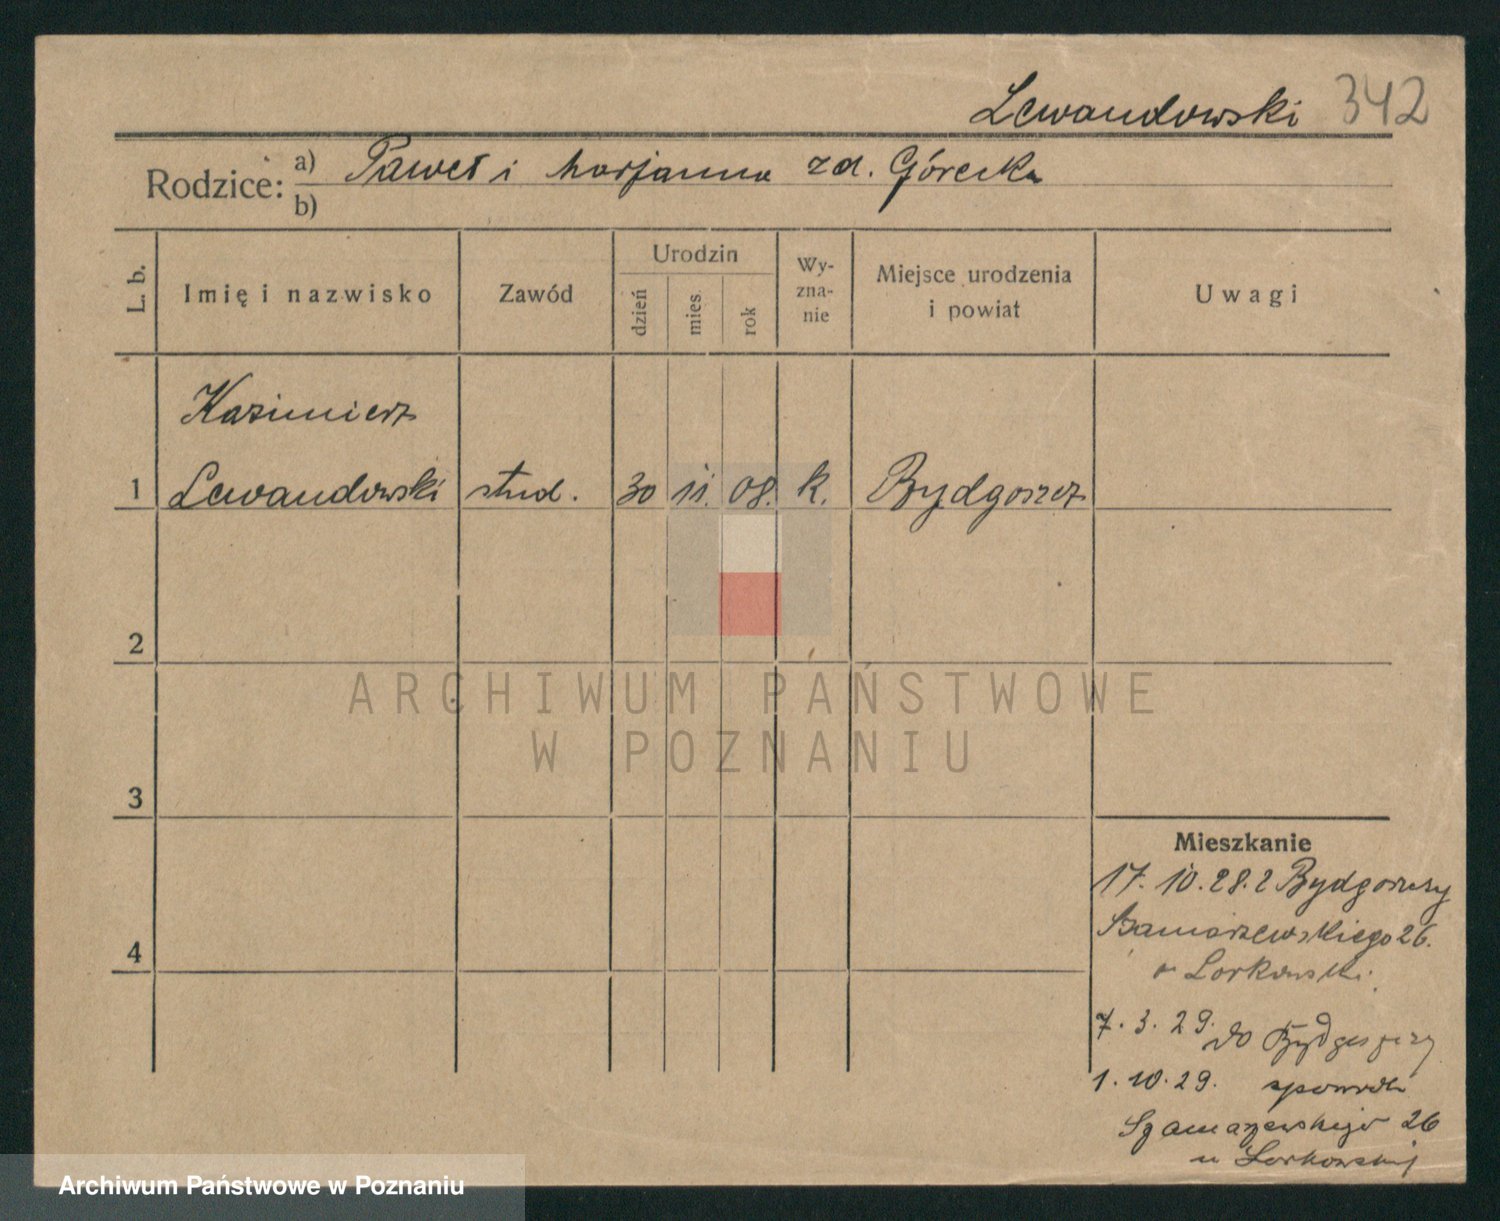 Lewandowski 342
Rodzice: a) Paweł i Marjanna zd. Górecka
b)
L. b. Imię i nazwisko Zawód Urodzin dzień mies. rok Wy-zna-nie Miejsce urodzenia i powiat Uwagi
Kazimierz
1 Lewandowski stud. 30 11. 08. k. Bydgoszcz
2
3
4
ARCHIWUM PAŃSTWOWE
W POZNANIU
Mieszkanie
17. 10. 28. z Bydgoszczy
Szamarzewskiego 26.
u Lorkowski
7. 3. 29. do Bydgoszczy
1. 10. 29.
Szamarzewskiego 26
u Lorkowskiej
Archiwum Państwowe w Poznaniu